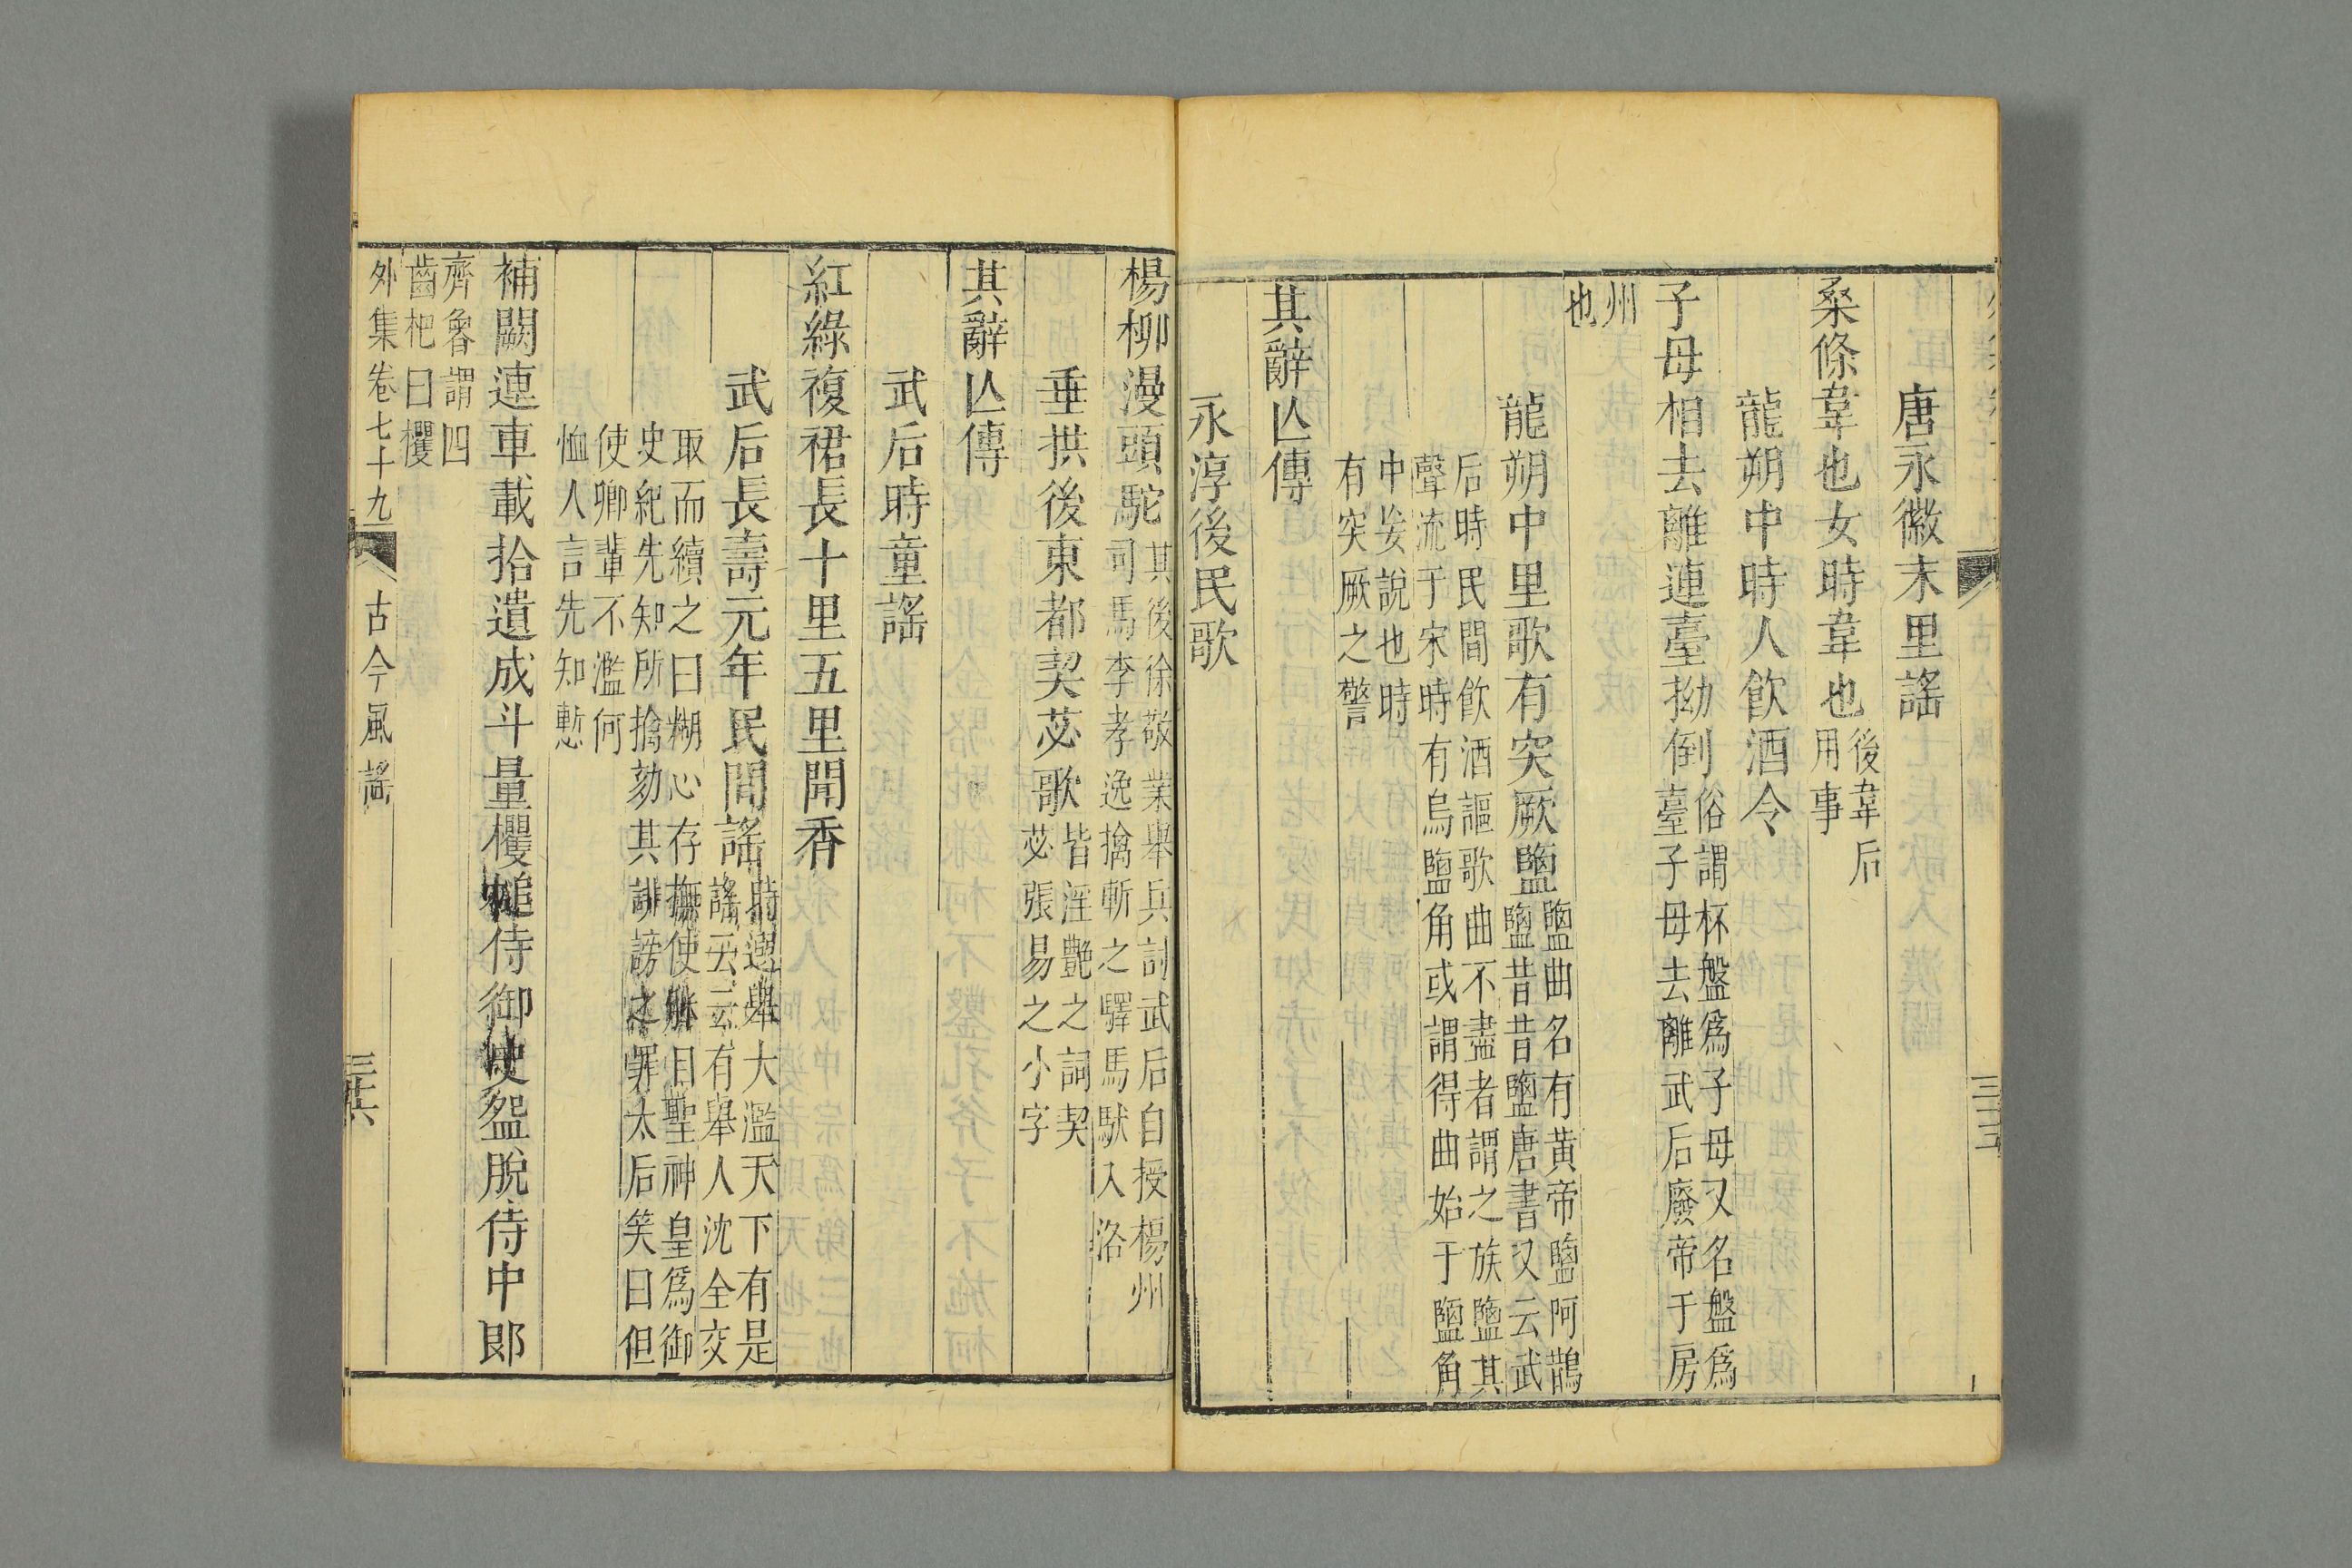 唐永徽末里謠
桑條韋也女時韋也
後韋后
用事
龍朔中時人飲酒令
子母相去離連臺拗倒
俗謂杯盤爲子母又名盤爲
臺子母去離武后廢帝于房
州
也
龍朔中里歌有突厥鹽
鹽曲名有黄帝鹽阿鵲
鹽昔昔鹽唐書又云武
后時民間飲酒謳歌曲不盡者謂之族鹽其
聲流于宋時有烏鹽角或謂得曲始于鹽角
中妄說也時
有突厥之警
其辭亾傳
永淳後民歌
楊柳漫頭駝
其後徐敬業舉兵討武后自授楊州
司馬李孝逸擒斬之驛馬馱入洛
垂拱後東都契苾歌
皆淫艷之詞契
苾張易之小字
其辭亾傳
武后時童謠
紅綠複裙長十里五里聞香
武后長壽元年民間謠
時選舉大濫天下有是
謠云云有舉人沈全交
取而續之曰糊心存撫使眯目聖神皇爲御
史紀先知所擒劾其誹謗之罪太后笑曰但
使卿輩不濫何
恤人言先知慙
補闕連車載拾遺成斗量欋槌侍御使盌脫侍中郎
齊魯謂四
齒杷曰欋
外集卷七十九 古今風謠